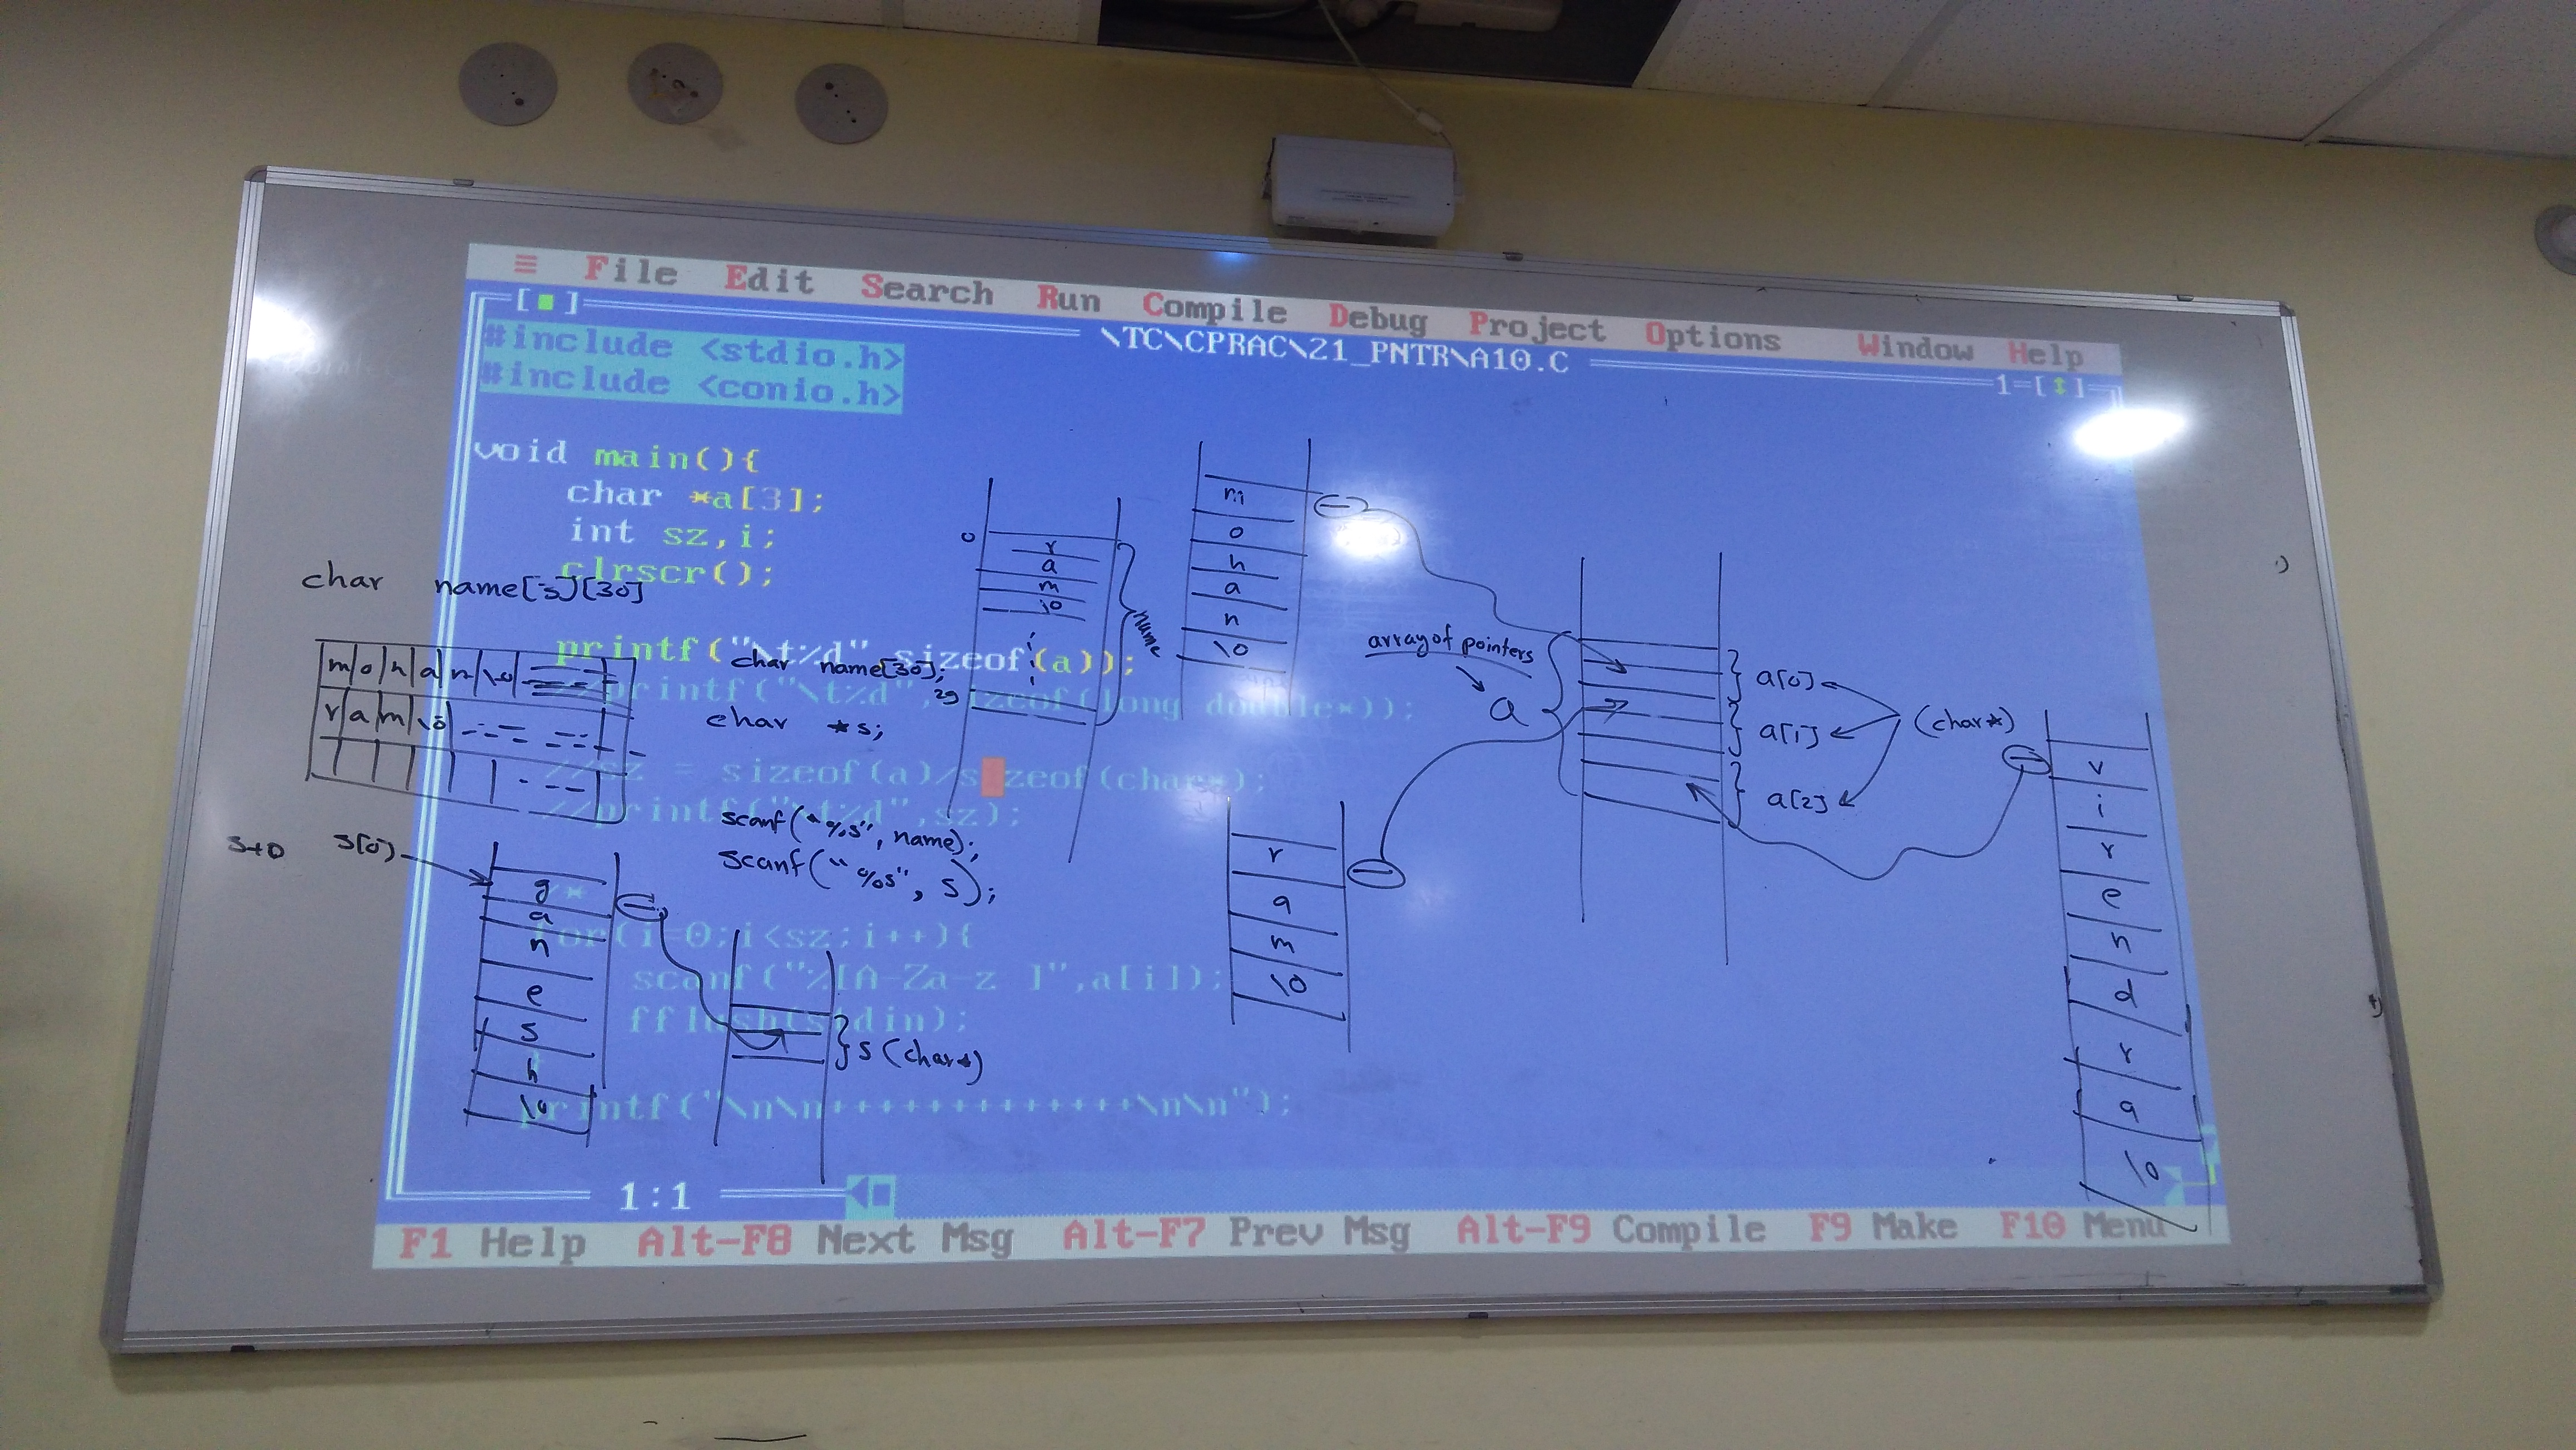 ≡ File Edit Search Run Compile Debug Project Options Window Help
[■] \TC\CPRAC\21_PNTR\A10.C 1=[↕]
#include <stdio.h>
#include <conio.h>
void main(){
char *a[3];
int sz,i;
clrscr();
printf("\t%d",sizeof(a));
//printf("\t%d",sizeof(long double*));
//sz = sizeof(a)/sizeof(char*);
//printf("\t%d",sz);
/*
for(i=0;i<sz;i++){
scanf("%[A-Za-z ]",a[i]);
fflush(stdin);
}
printf("\n\n+++++++++++++\n\n");
1:1
F1 Help Alt-F8 Next Msg Alt-F7 Prev Msg Alt-F9 Compile F9 Make F10 Menu
char name[3][30]
m o h a n \0
r a m \0
char name[30];
char *s;
scanf("%s", name);
scanf("%s", s);
s+0 s[0]
g
a
n
e
s
h
\0
s (char*)
0
r
a
m
\0
29
name
m
o
h
a
n
\0
array of pointers
a
a[0]
a[1]
a[2]
(char*)
r
a
m
\0
v
i
r
e
n
d
r
a
\0